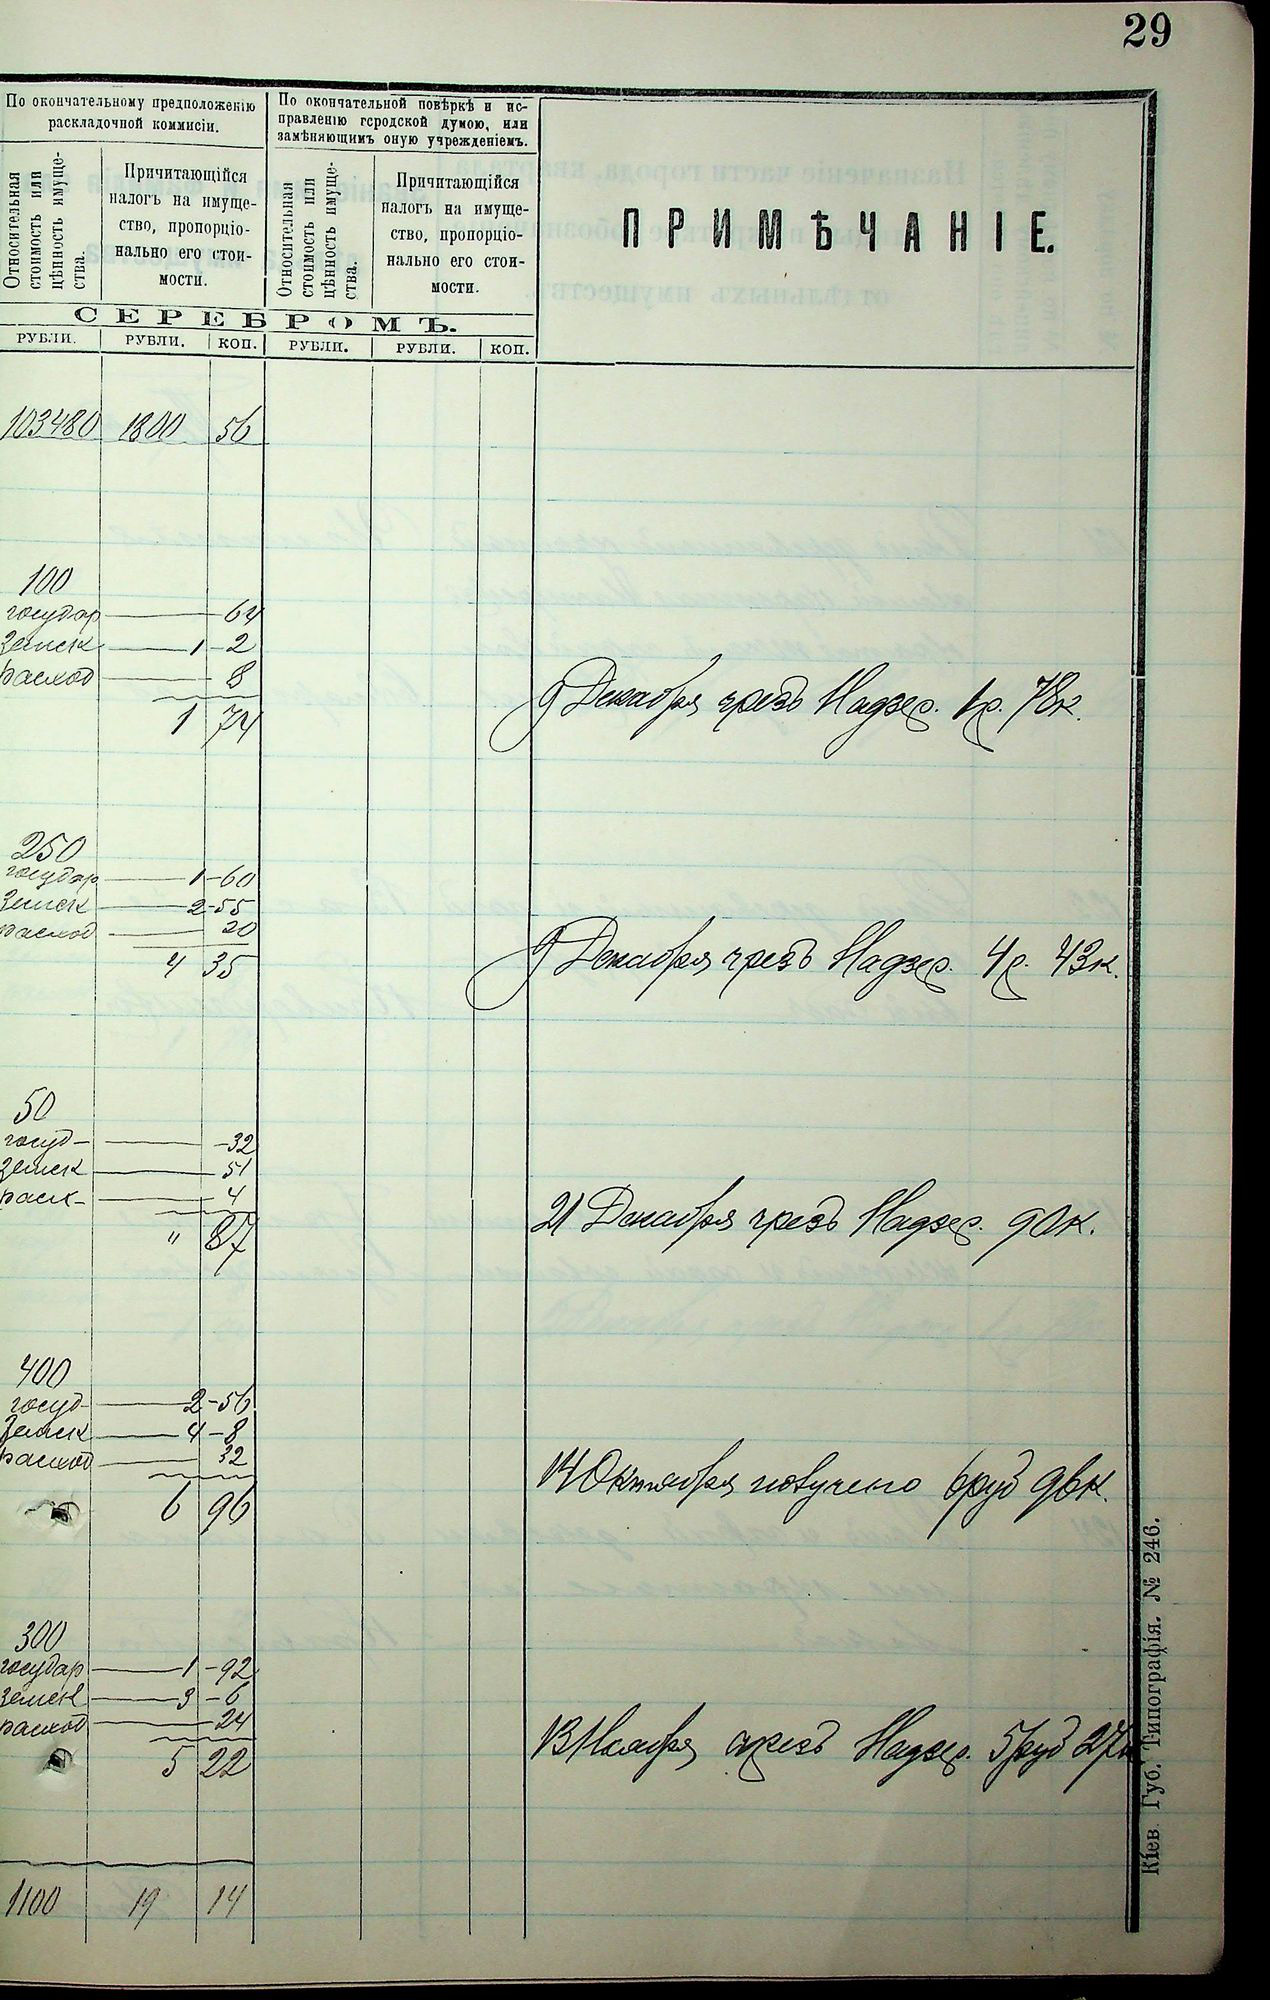 29
По окончательному предположенію
раскладочной коммисіи.
По окончательной повѣркѣ и ис-
правленію городской думою, или
замѣняющимъ оную учрежденіемъ.
Относительная
стоимость или
цѣнность имуще-
ства.
Причитающійся
налогъ на имуще-
ство, пропорціо-
нально его стои-
мости.
Относительная
стоимость или
цѣнность имуще-
ства.
Причитающійся
налогъ на имуще-
ство, пропорціо-
нально его стои-
мости.
ПРИМѢЧАНІЕ.
СЕРЕБРОМЪ.
РУБЛИ. РУБЛИ. КОП. РУБЛИ. РУБЛИ. КОП.
103480 1800 56
100
государ 64
земск 1-2
расход 8
1 74
9 Декабря чрезъ Надзер. 1р. 78к.
250
государ 1-60
земск 2-55
расход 20
4 35
9 Декабря чрезъ Надзер. 4р. 43к.
50
госуд- -32
земск 51
расх- 4
" 87
21 Декабря чрезъ Надзер. 90к.
400
госуд- 2-56
Земск 4-8
расход 32
6 96
14 Октября получено 6руб 96к.
300
государ 1-92
земск 3-6
расход 24
5 22
13 Ноября чрезъ Надзер. 5руб 27к
1100 19 14
Кіев. Губ. Типографія. № 246.